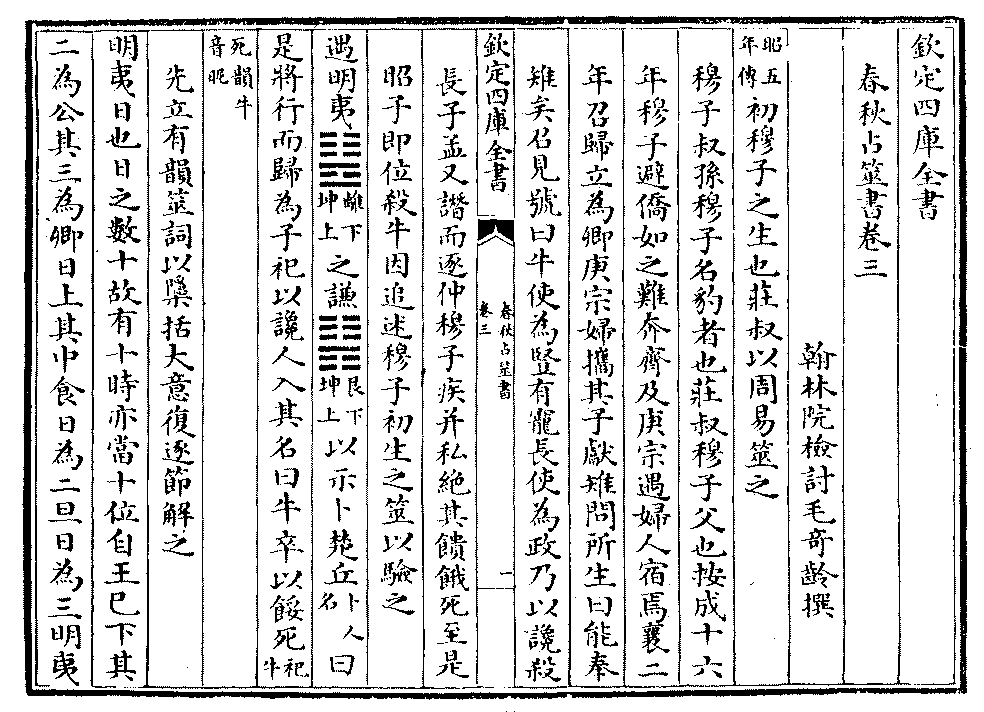 欽定四庫全書
春秋占筮書卷三
翰林院檢討毛奇齡撰
昭五年傳初穆子之生也莊叔以周易筮之
穆子叔孫穆子名豹者也莊叔穆子父也按成十六
年穆子避僑如之難奔齊及庚宗遇婦人宿焉襄二
年召歸立為卿庚宗婦攜其子獻雉問所生曰能奉
雉矣召見號曰牛使為豎有寵長使為政乃以讒殺
欽定四庫全書
春秋占筮書
卷三
一
長子孟又譖而逐仲穆子疾并私絶其饋餓死至是
昭子即位殺牛因追述穆子初生之筮以驗之
遇明夷䷣離下坤上之謙䷎艮下坤上以示卜楚丘卜人名曰
是將行而歸為子祀以讒人入其名曰牛卒以餒死祀牛
死韻牛音眤
先立有韻筮詞以櫽括大意復逐節解之
明夷日也日之數十故有十時亦當十位自王已下其
二為公其三為卿日上其中食日為二旦日為三明夷